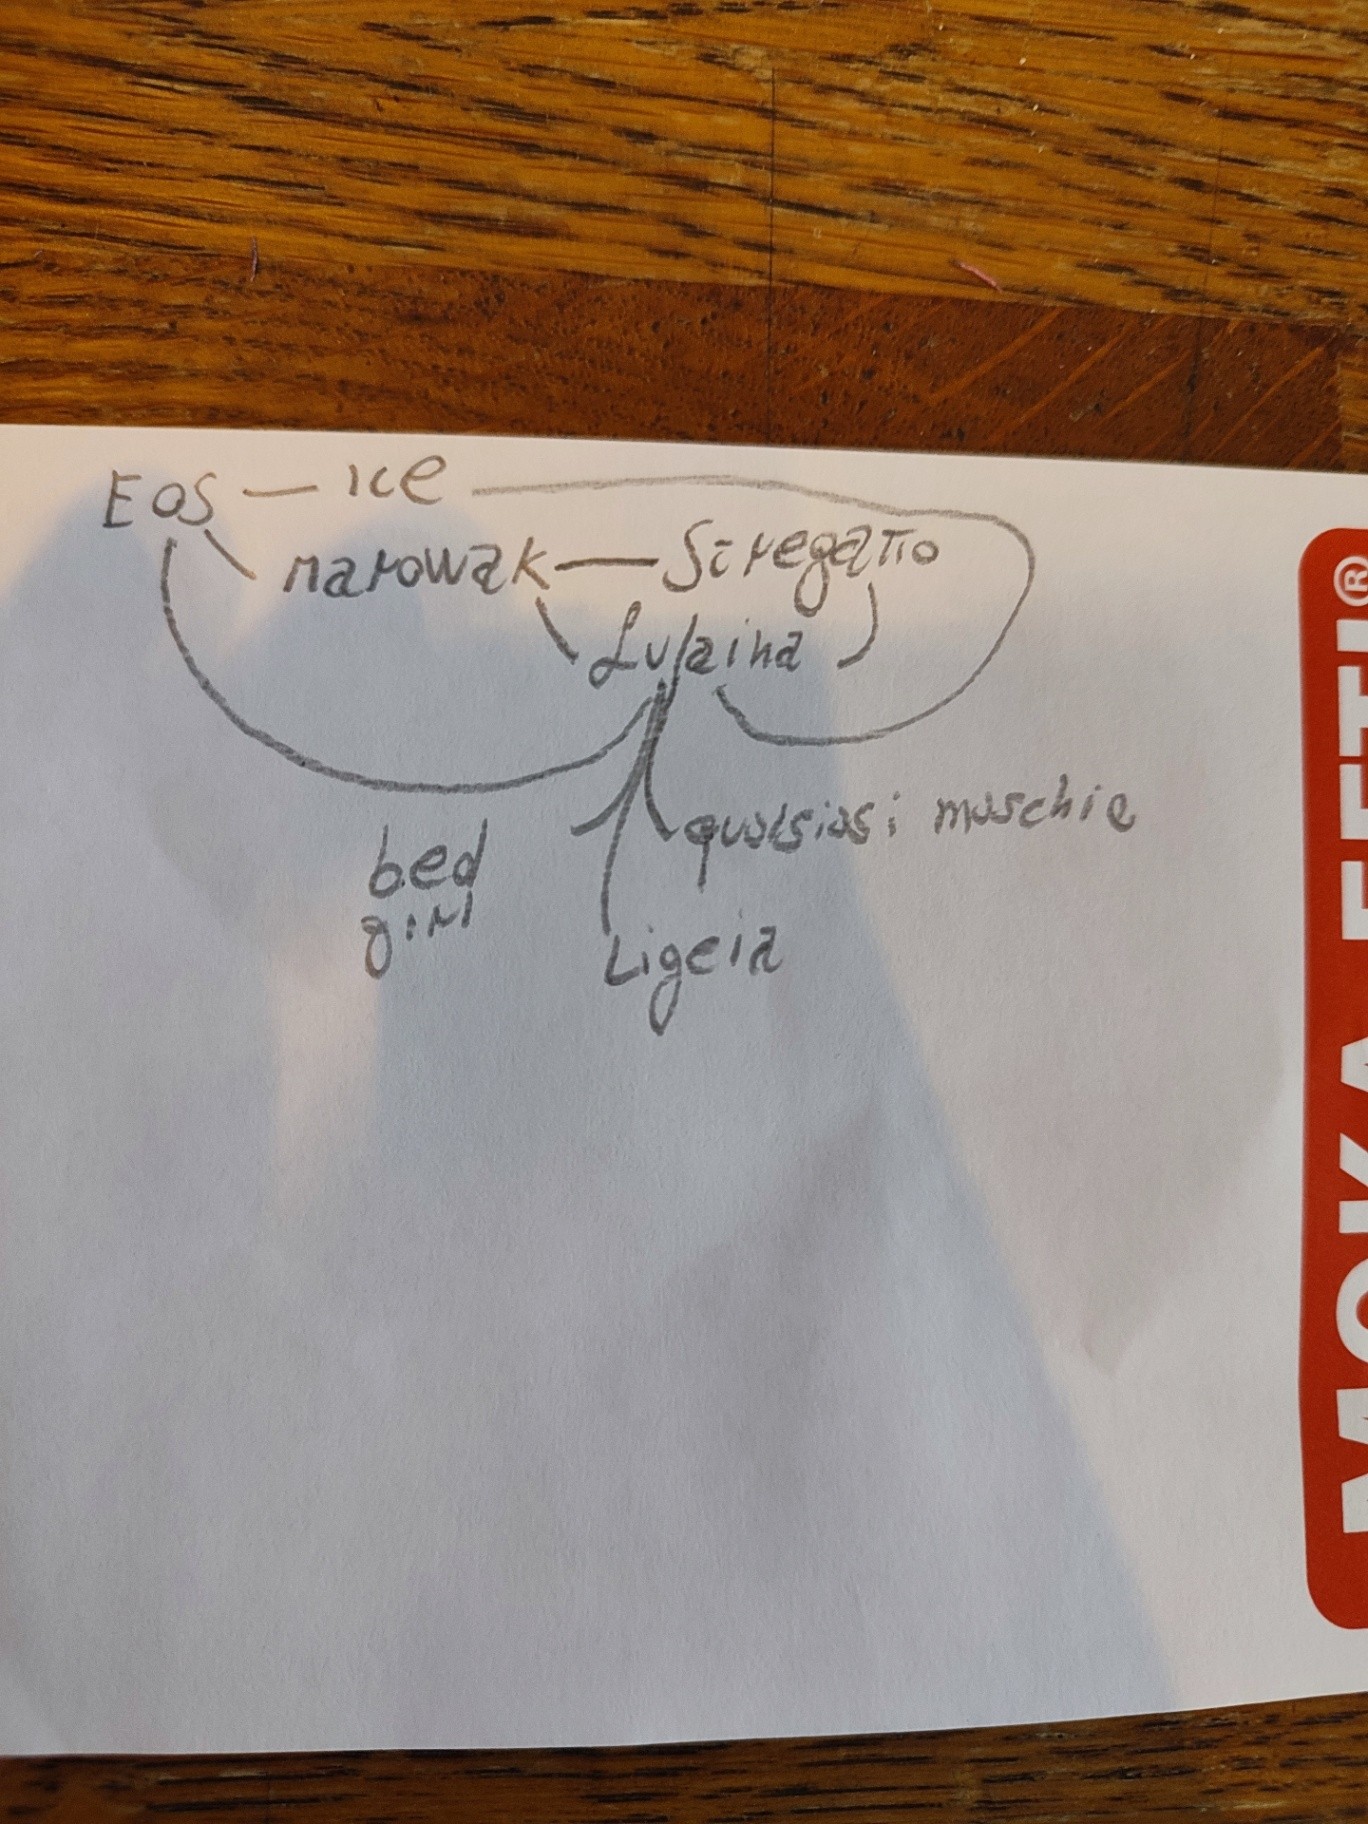 Eos — ice
marowak — Stregatto
Lulaina
qualsiasi maschio
bed
girl
Ligeia
MOKA EFTI®